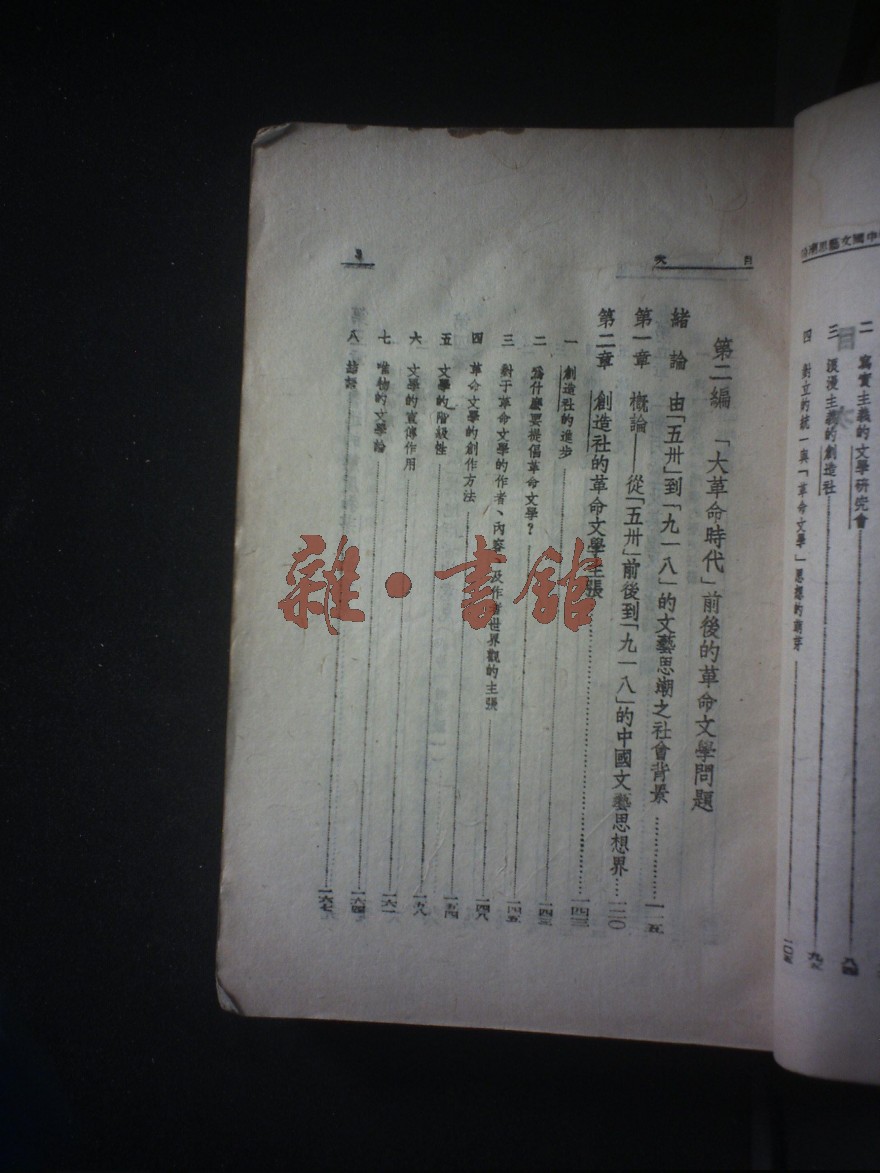 中國文藝思潮
二 寫實主義的文學研究會 八四
三 浪漫主義的創造社
四 對立的統一與「革命文學」思想的萌芽 一〇五
目次
第二編 「大革命時代」前後的革命文學問題
緒論 由「五卅」到「九一八」的文藝思潮之社會背景 一一五
第一章 概論——從「五卅」前後到「九一八」的中國文藝思想界 一二〇
第二章 創造社的革命文學主張 一四三
一 創造社的進步 一四三
二 爲什麼要提倡革命文學? 一四五
三 對于革命文學的作者、內容、及作者世界觀的主張 一四八
四 革命文學的創作方法 一五四
五 文學的階級性 一五八
六 文學的宣傳作用 一六一
七 唯物的文學論 一六四
八 結語 一六七
雜·書館